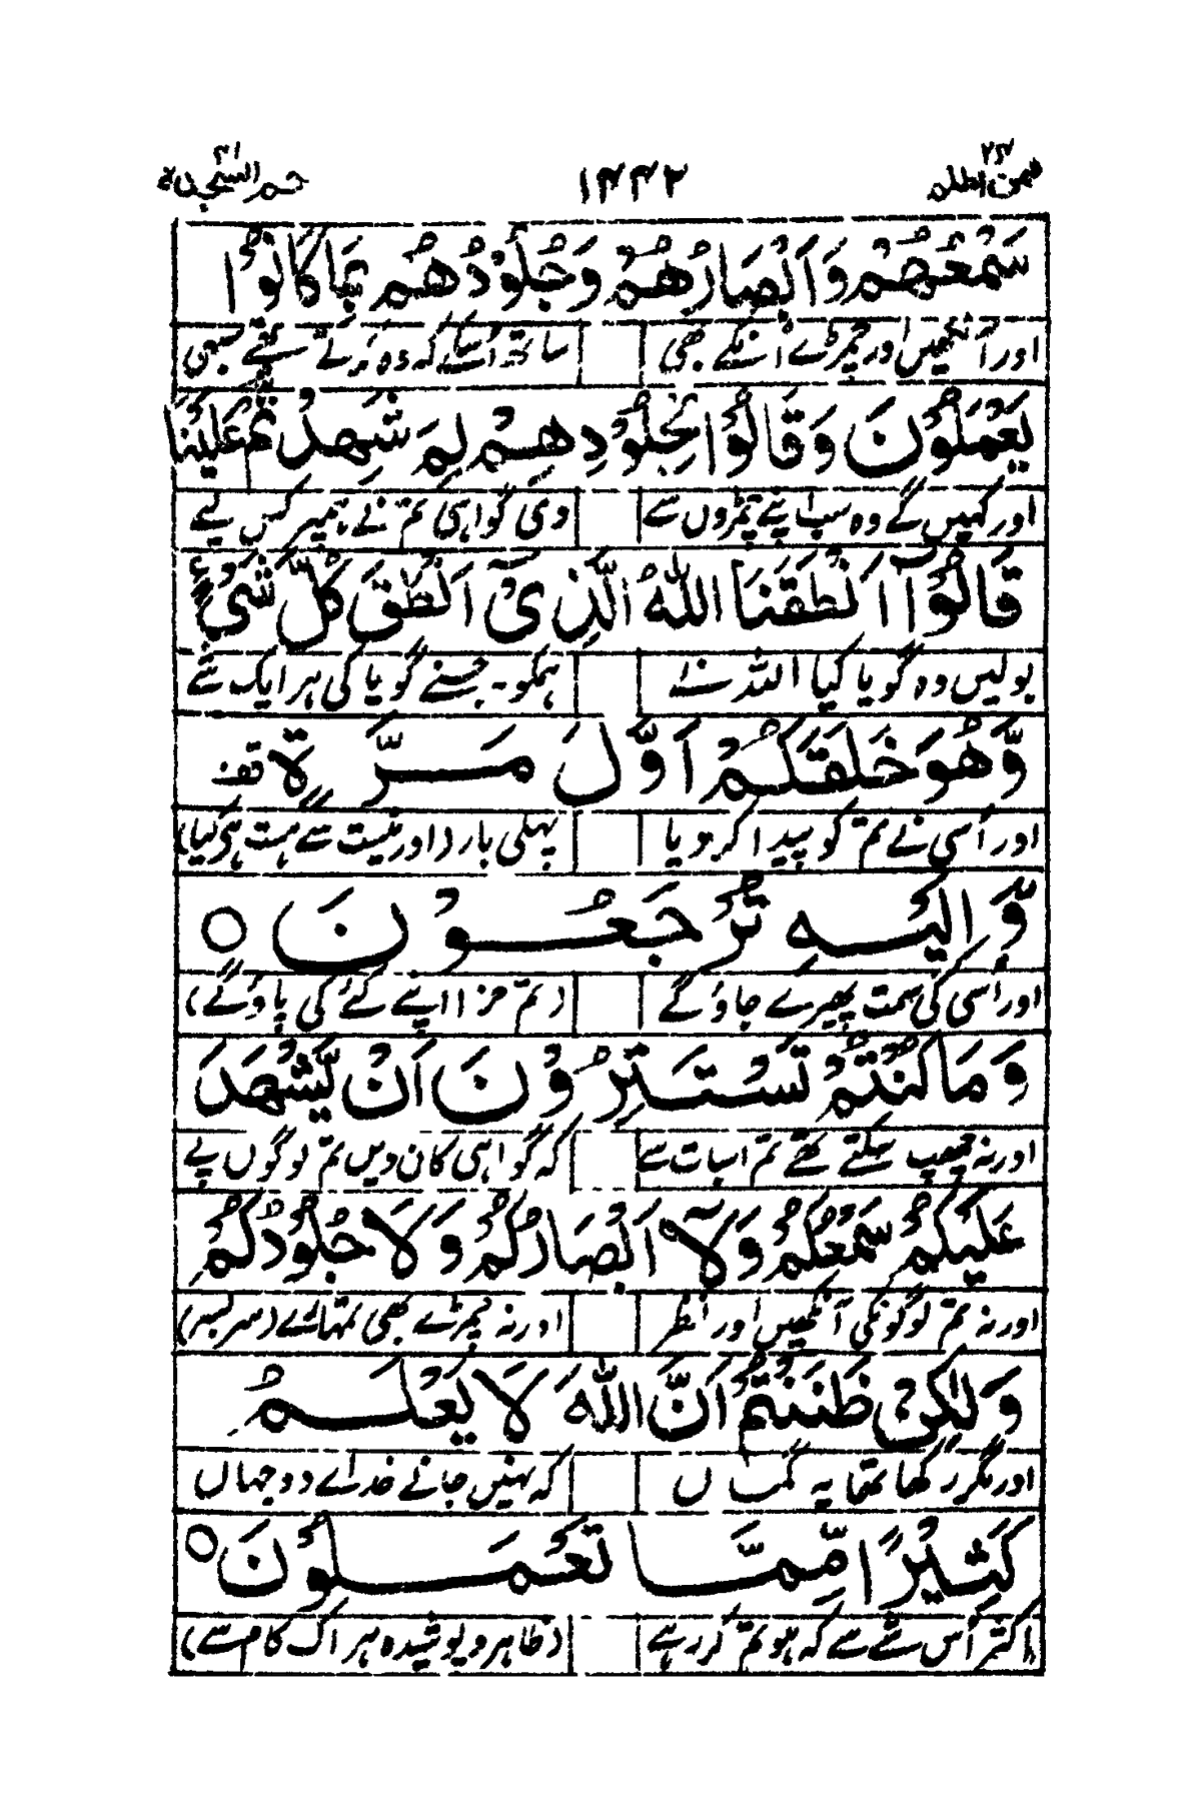 فمن اظلم ۲۴
۱۴۴۲
حم السجدة ۴۱
سَمْعُهُمْ وَاَبْصَارُهُمْ وَجُلُوْدُهُمْ بِمَا كَانُوْا
اور آنکھیں اور چمڑے انکے بھی
يَعْمَلُوْنَ وَقَالُوْا لِجُلُوْدِهِمْ لِمَ شَهِدْتُّمْ عَلَيْنَا
اور کہیں گے وہ سب اپنے چمڑوں سے دی گواہی تم نے ہمپر کس لیے
قَالُوْٓا اَنْطَقَنَا اللّٰهُ الَّذِيْٓ اَنْطَقَ كُلَّ شَيْءٍ
بولیں وہ گویا کیا اللہ نے ہمکو۔ جسنے گویا کی ہر ایک شے
وَّهُوَ خَلَقَكُمْ اَوَّلَ مَرَّةٍ قف
اور اُسی نے تم کو پیدا کر دیا پہلی بار (اور نیست سے ہست ہی کیا)
وَّاِلَيْهِ تُرْجَعُوْنَ ○
اور اُسی کی سمت پھیرے جاؤ گے (تم جزا اپنے کئے کی پاؤ گے)
وَمَا كُنْتُمْ تَسْتَتِرُوْنَ اَنْ يَّشْهَدَ
اور نہ چھپ سکتے تھے تم اسبات سے کہ گواہی کان دیں تم لوگوں پے
عَلَيْكُمْ سَمْعُكُمْ وَلَآ اَبْصَارُكُمْ وَلَا جُلُوْدُكُمْ
اور نہ تم لوگونکی آنکھیں اور نظر اور نہ چمڑے بھی تمہارے (سربسر)
وَلٰكِنْ ظَنَنْتُمْ اَنَّ اللّٰهَ لَا يَعْلَمُ
اور مگر رکھا تھا یہ گماں کہ نہیں جانے خداے دوجہاں
كَثِيْرًا مِّمَّا تَعْمَلُوْنَ ○
اکثر اُس شے سے کہ ہو تم کر رہے (ظاہر و پوشیدہ ہر اک کام سے)